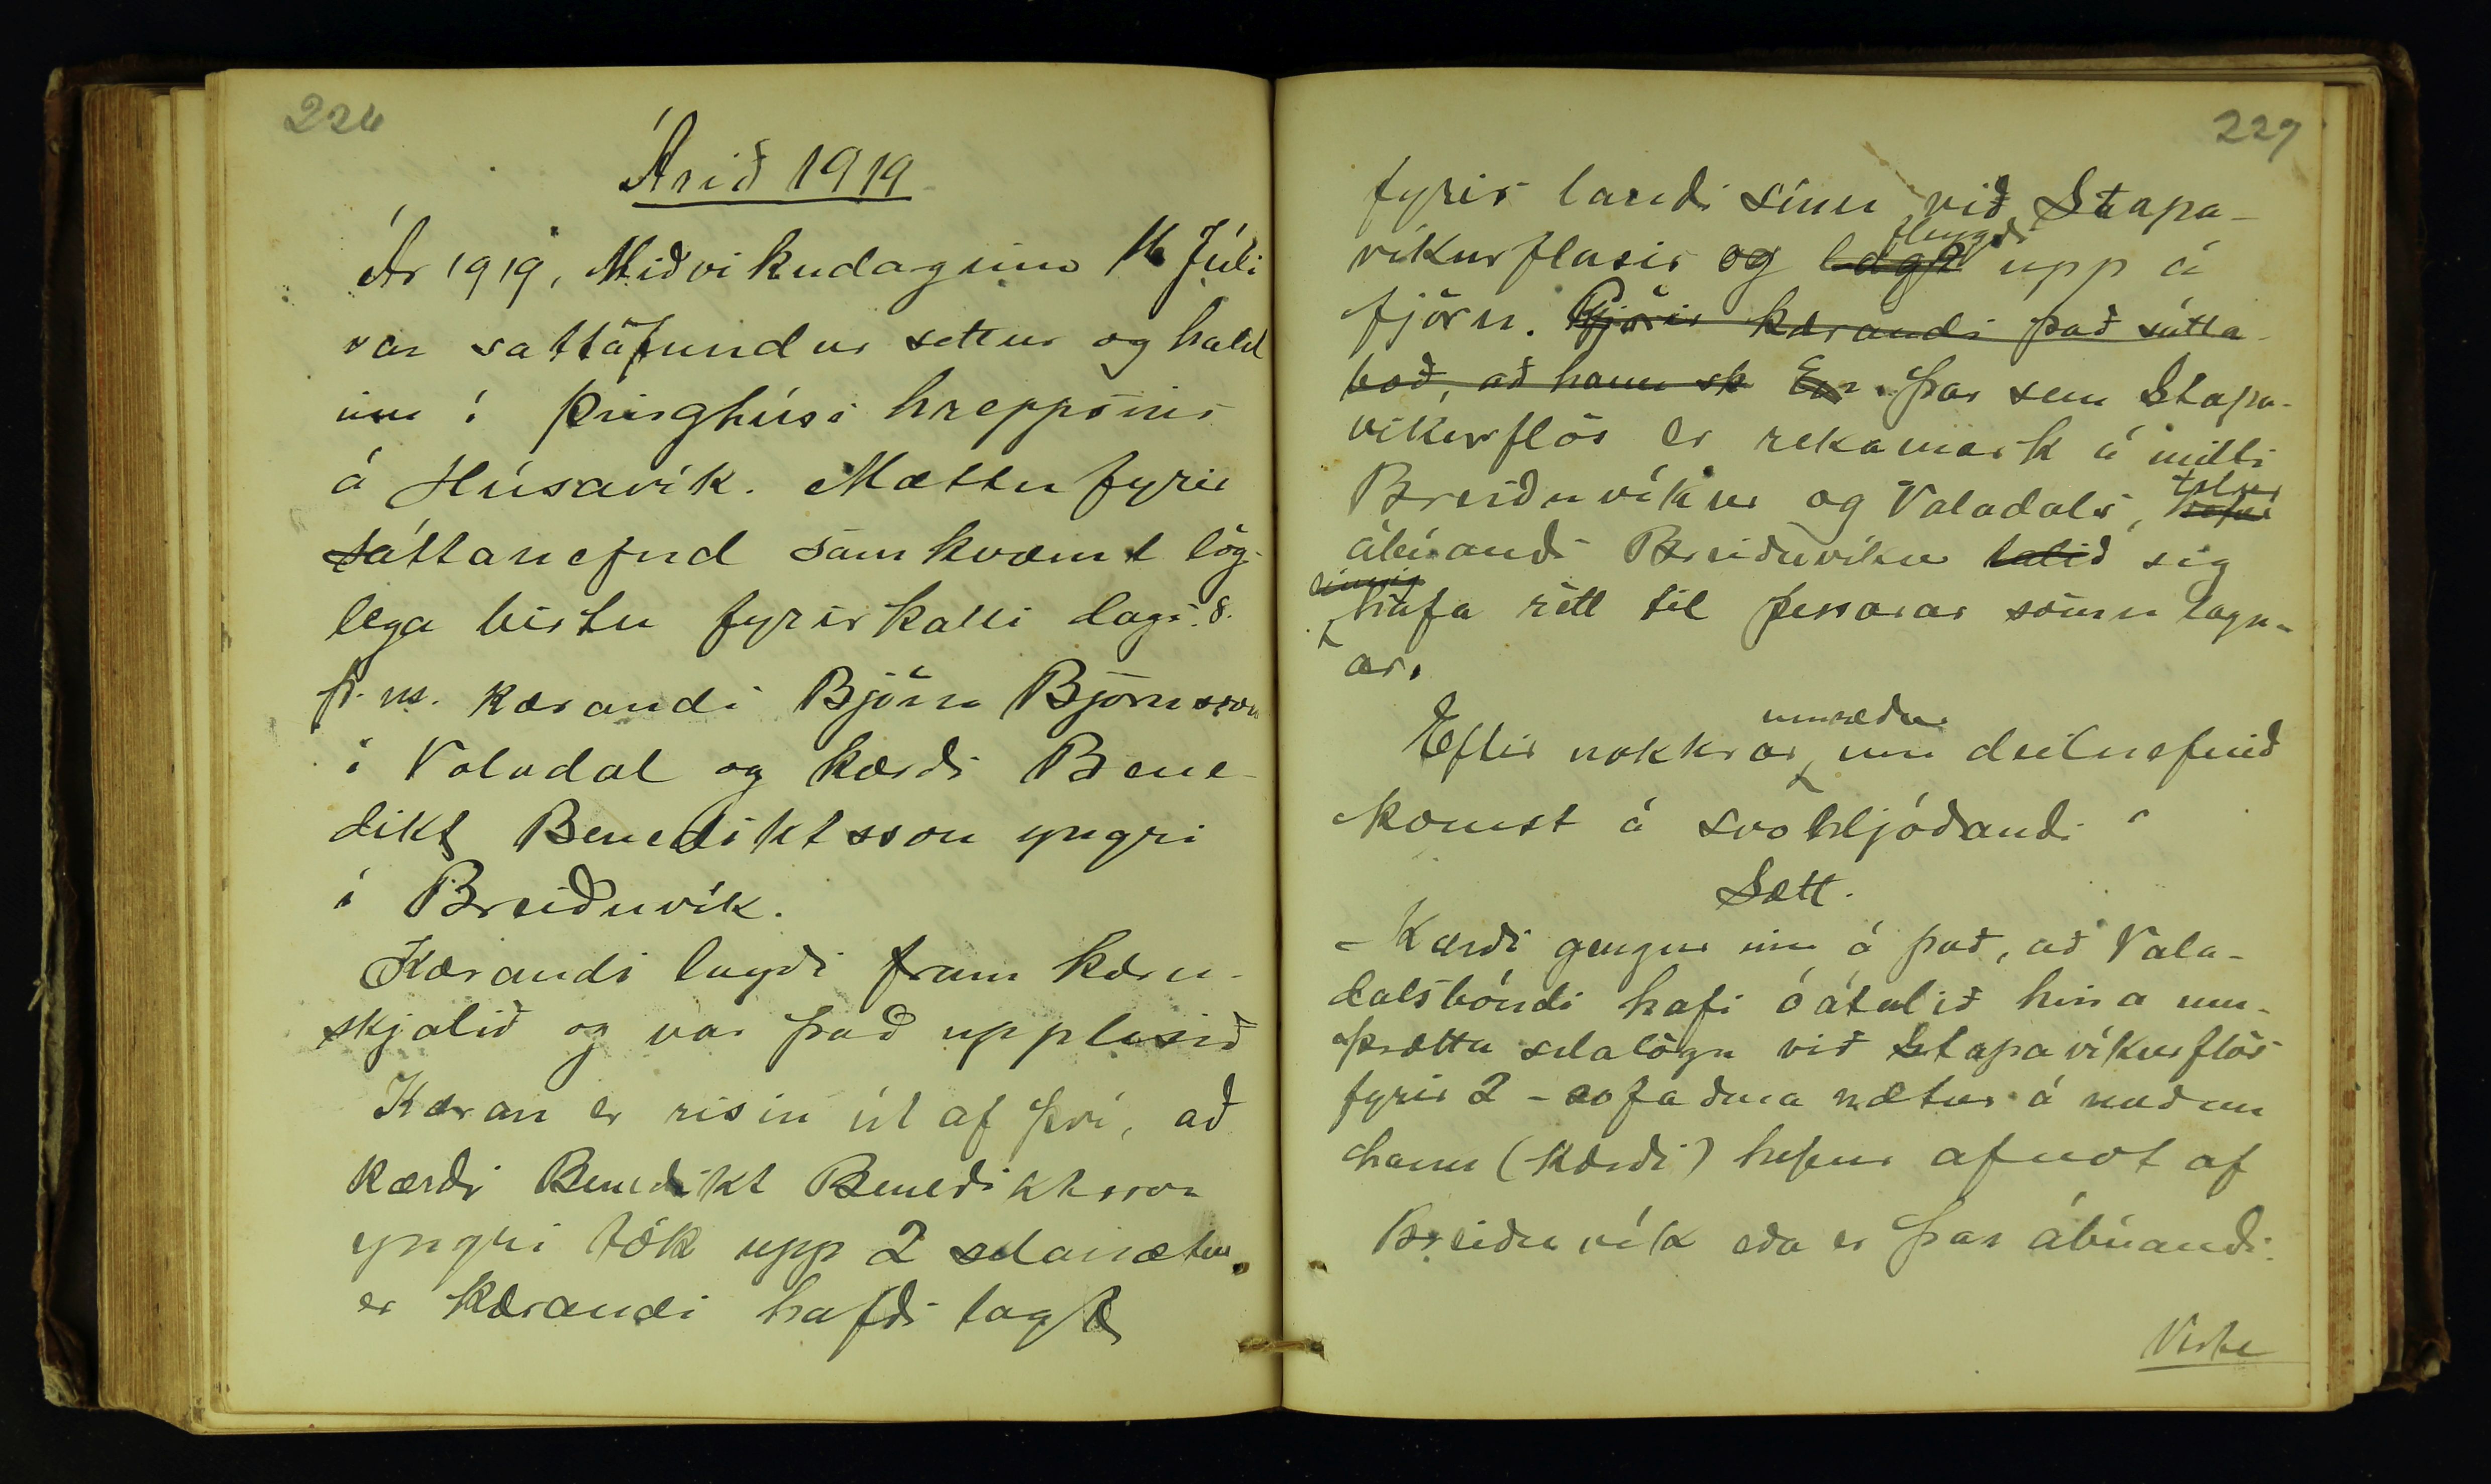 226
Árið 1919
Ár 1919, Miðvikudaginn 16 Júlí
var sáttafundur settur og hald
inn í þinghúsi hreppsins
á Húsavík. Mættu fyrir
sáttanefnd samkvæmt lög-
lega birtu fyrirkalli dags. 8.
þ. m. kærandi Björn Björnsson
í Valadal og kærði Bene-
dikt Benediktsson yngri
í Breiðuvík.
Kærandi lagði fram kæru-
skjalið og var það upplesið
Kæran er risin út af því, að
kærði Benedikt Benediktsson
yngri tók upp 2 selanætur,
er kærandi hafði lagt
227
fyrir landi sínu við Stapa-
víkurflasir og lagt flengdi upp á
fjöru. Gjörir kærandi það sátta-
boð, að hann sk En þar sem Stapa-
víkurflös er rekamark á milli
Breiðuvíkur og Valadals, hefur telur
ábúandi Breiðuvíkur talið sig
einnig hafa rétt til þessarar sömu lagn-
ar.
Eftir nokkrar umræður um deiluefnið
komst á svohljóðandi
Sætt.
Kærði gengur inn á það, að Vala-
dalsbóndi hafi óátalið hina um-
þrættu selalögn við Stapavíkurflös
fyrir 2 - 20 faðma nætur á meðan
hann (kærði) hefur afnot af
Breiðuvík eða er þar ábúandi.